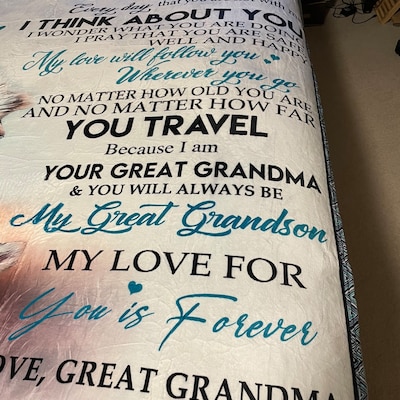 Every day, that you are not with
I THINK ABOUT YOU
I WONDER WHAT YOU ARE DOING
I PRAY THAT YOU ARE SAFE
WELL AND HAPPY
My love will follow you
Wherever you go
NO MATTER HOW OLD YOU ARE
AND NO MATTER HOW FAR
YOU TRAVEL
Because I am
YOUR GREAT GRANDMA
& YOU WILL ALWAYS BE
My Great Grandson
MY LOVE FOR
You is Forever
OVE, GREAT GRANDMA